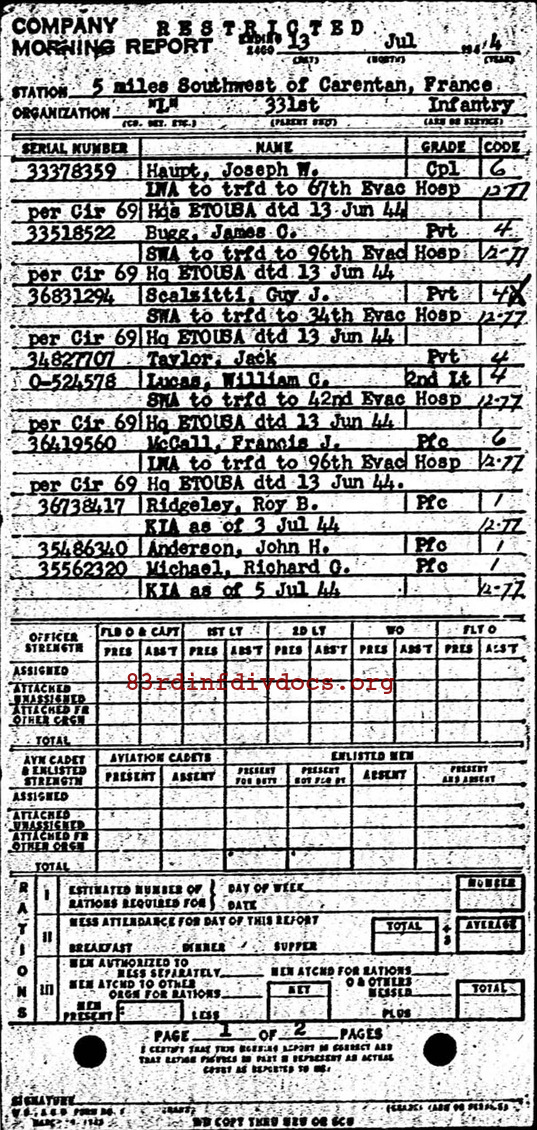 COMPANY RESTRICTED
MORNING REPORT ENDING 2400 13 Jul 1944
(DAY) (MONTH) (YEAR)
STATION 5 miles Southwest of Carentan, France
ORGANIZATION "L" 331st Infantry
(CO. DET. ETC.) (PARENT UNIT) (ARM OR SERVICE)
SERIAL NUMBER NAME GRADE CODE
33378359 Haupt, Joseph W. Cpl 6
LWA to trfd to 67th Evac Hosp 12-77
per Cir 69 Hqs ETOUSA dtd 13 Jun 44
33518522 Bugg, James C. Pvt 4
SWA to trfd to 96th Evac Hosp 12-77
per Cir 69 Hq ETOUSA dtd 13 Jun 44
36831294 Scalzitti, Guy J. Pvt 4
SWA to trfd to 34th Evac Hosp 12-77
per Cir 69 Hq ETOUSA dtd 13 Jun 44
34827707 Taylor, Jack Pvt 4
O-524578 Lucas, William C. 2nd Lt 4
SWA to trfd to 42nd Evac Hosp 12-77
per Cir 69 Hq ETOUSA dtd 13 Jun 44
36419560 McCall, Francis J. Pfc 6
LWA to trfd to 96th Evac Hosp 12-77
per Cir 69 Hq ETOUSA dtd 13 Jun 44.
36738417 Ridgeley, Roy B. Pfc 1
KIA as of 3 Jul 44 12-77
35486340 Anderson, John H. Pfc 1
35562320 Michael, Richard G. Pfc 1
KIA as of 5 Jul 44 12-77
OFFICER STRENGTH FLD O & CAPT 1ST LT 2D LT WO FLT O
PRES ABS'T PRES ABS'T PRES ABS'T PRES ABS'T PRES ABS'T
ASSIGNED
83rdinfdivdocs.org
ATTACHED UNASSIGNED
ATTACHED FR OTHER ORGN
TOTAL
AVN CADET & ENLISTED STRENGTH AVIATION CADETS ENLISTED MEN
PRESENT ABSENT PRESENT FOR DUTY PRESENT NOT FOR DY ABSENT PRESENT AND ABSENT
ASSIGNED
ATTACHED UNASSIGNED
ATTACHED FR OTHER ORGN
TOTAL
RATIONS
I ESTIMATED NUMBER OF RATIONS REQUIRED FOR DAY OF WEEK DATE NUMBER
II MESS ATTENDANCE FOR DAY OF THIS REPORT TOTAL ÷ 3 AVERAGE
BREAKFAST DINNER SUPPER
III MEN AUTHORIZED TO MESS SEPARATELY MEN ATCHD FOR RATIONS
MEN ATCHD TO OTHER ORGN FOR RATIONS NET O & OTHERS MESSED TOTAL
MEN PRESENT LESS PLUS
PAGE 1 OF 2 PAGES
I CERTIFY THAT THIS MORNING REPORT IS CORRECT AND
SIGNATURE
W.D., A.G.O. FORM NO. 1